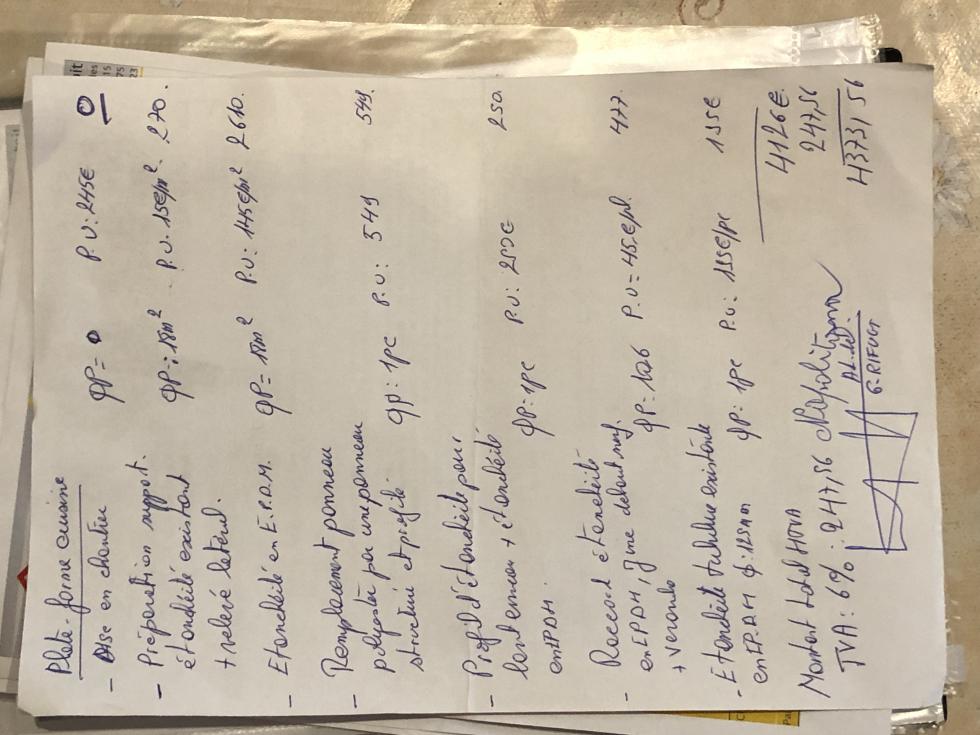 Plate-forme cuisine
- Mise en chantier QP= 0 P.U: 245€ 0
- Préparation support. QP: 18m² P.U: 15€/m² 270.
étanchéité existant
+ relevé latéral.
- Etanchéité en E.P.D.M. QP= 18m² P.U: 145€/m² 2610.
- Remplacement panneau
polyester par une panneau
structuré et profilé QP: 1pc P.U: 549 549.
- Profil d'étanchéité pour
+ étanchéité
en EPDM QP= 1pc P.U: 250€ 250.
- Raccord étanchéité
en EPDM,
+ veranda QP= 10,6 P.U= 45€/pl. 477.
- Etanchéité tubulure existante
en E.P.D.M φ: 125mm QP: 1pc P.U: 155€/pc 155€
4126€.
247,56
4373,56
Montant total HTVA
TVA: 6%: 247,56
G. RIFUGT